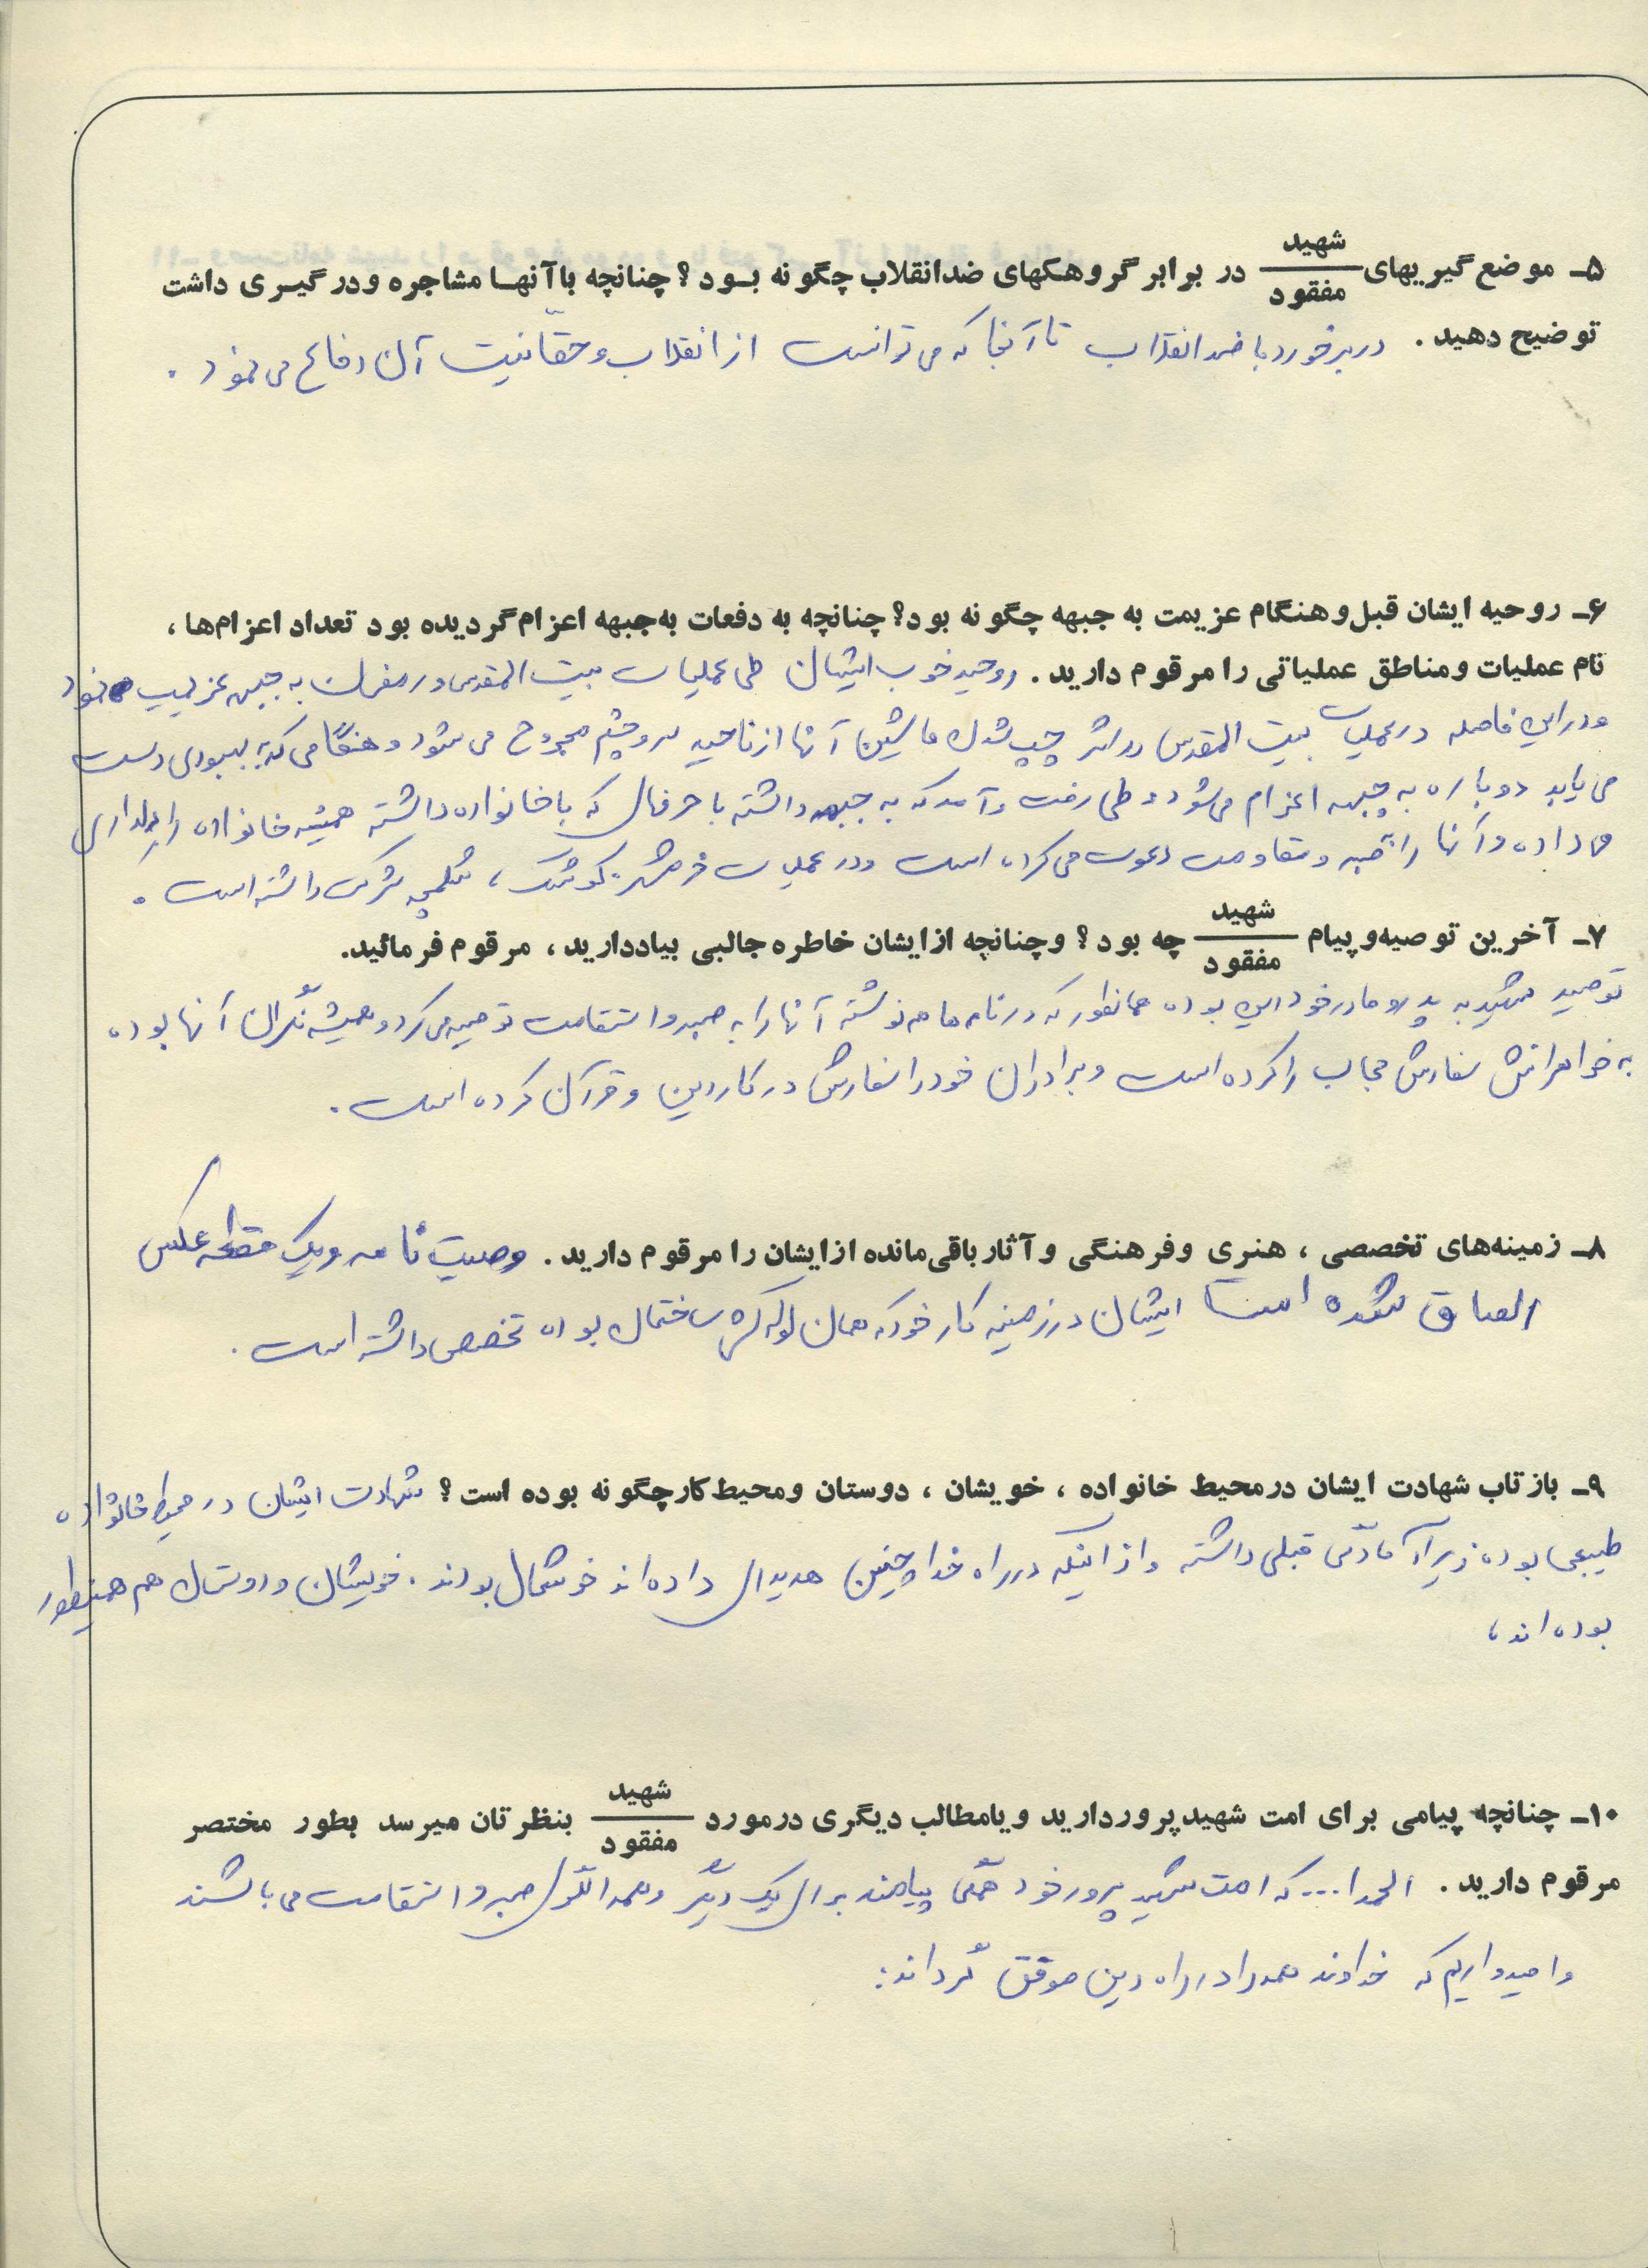 ۵ـ موضع گیریهای شهید / مفقود در برابر گروهکهای ضدانقلاب چگونه بود؟ چنانچه با آنها مشاجره و درگیری داشت
توضیح دهید. در برخورد با ضد انقلاب تا آنجا که می توانست از انقلاب و حقّانیت آن دفاع می نمود.
۶ـ روحیه ایشان قبل و هنگام عزیمت به جبهه چگونه بود؟ چنانچه به دفعات به جبهه اعزام گردیده بود تعداد اعزام‌ها،
نام عملیات و مناطق عملیاتی را مرقوم دارید. روحیه خوب ایشان طی عملیات بیت المقدس و رمضان به جبهه عزیمت نمود
و در این فاصله در عملیات بیت المقدس در اثر چپ شدن ماشین آنها از ناحیه سر و چشم مجروح می شود و هنگامی که به بهبودی دست
می یابد دوباره به جبهه اعزام می شود و طی رفت و آمد که به جبهه داشته با حرفهای که با خانواده داشته همیشه خانواده را دلداری
می داده و آنها را به صبر و مقاومت دعوت می کرده است و در عملیات خرمشهر، کوشک، شلمچه شرکت داشته است.
۷ـ آخرین توصیه و پیام شهید / مفقود چه بود؟ و چنانچه از ایشان خاطره جالبی بیاد دارید، مرقوم فرمائید.
توصیه شهید به پدر و مادر خود این بوده همانطور که در نامه ها می نوشته آنها را به صبر و استقامت توصیه می کرد و همیشه نگران آنها بوده
به خواهرانش سفارش حجاب را کرده است و برادران خود را سفارش در کار دین و قرآن کرده است.
۸ـ زمینه‌های تخصصی، هنری و فرهنگی و آثار باقی مانده از ایشان را مرقوم دارید. وصیت نامه و یک قطعه عکس
الصاق شده است ایشان در زمینه کار خود که همان لوله کشی ساختمان بوده تخصص داشته است.
۹ـ بازتاب شهادت ایشان در محیط خانواده، خویشان، دوستان و محیط کار چگونه بوده است؟ شهادت ایشان در محیط خانواده
طبیعی بوده زیرا آمادگی قبلی داشته و از اینکه در راه خدا چنین هدیه ای داده اند خوشحال بودند. خویشان و دوستان هم همینطور
بوده اند،
۱۰ـ چنانچه پیامی برای امت شهیدپرور دارید و یا مطالب دیگری در مورد شهید / مفقود بنظرتان میرسد بطور مختصر
مرقوم دارید. الحمدا... که امت شهید پرور خود همگی پیامند برای یک دیگر و همه الگوی صبر و استقامت می باشند
و امیدواریم که خداوند همه را در راه دین موفق گرداند: